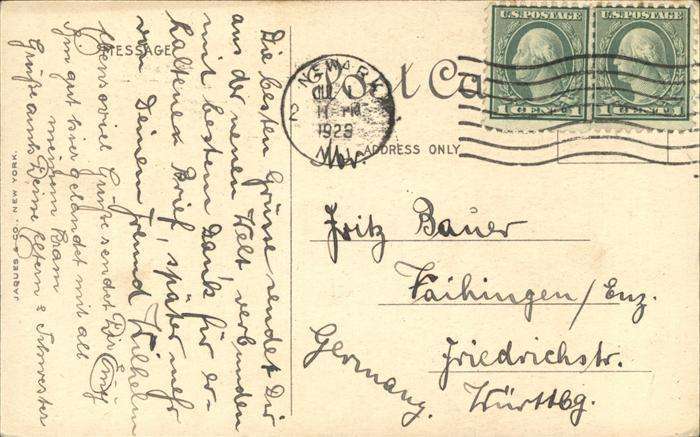 MESSAGE
Die besten Grüsse sendet Dir
aus der neuen Welt verbunden
mit bestem Dank für er-
haltenen Brief, später mehr
von Deinem Freund Wilhelm
Grüsse sendet Dir Emy
Bin gut hier gelandet mit all
meinem Kram
Grüße auch Deine Eltern & Schwester
JAQUES & CO. NEW YORK.
Post Ca
ADDRESS ONLY
NEWARK
2
11 PM
1923
N.J.
U.S. POSTAGE
1 CENT 1
U.S. POSTAGE
1 CENT 1
Fritz Bauer
Vaihingen/Enz.
Friedrichstr.
Württbg.
Germany.